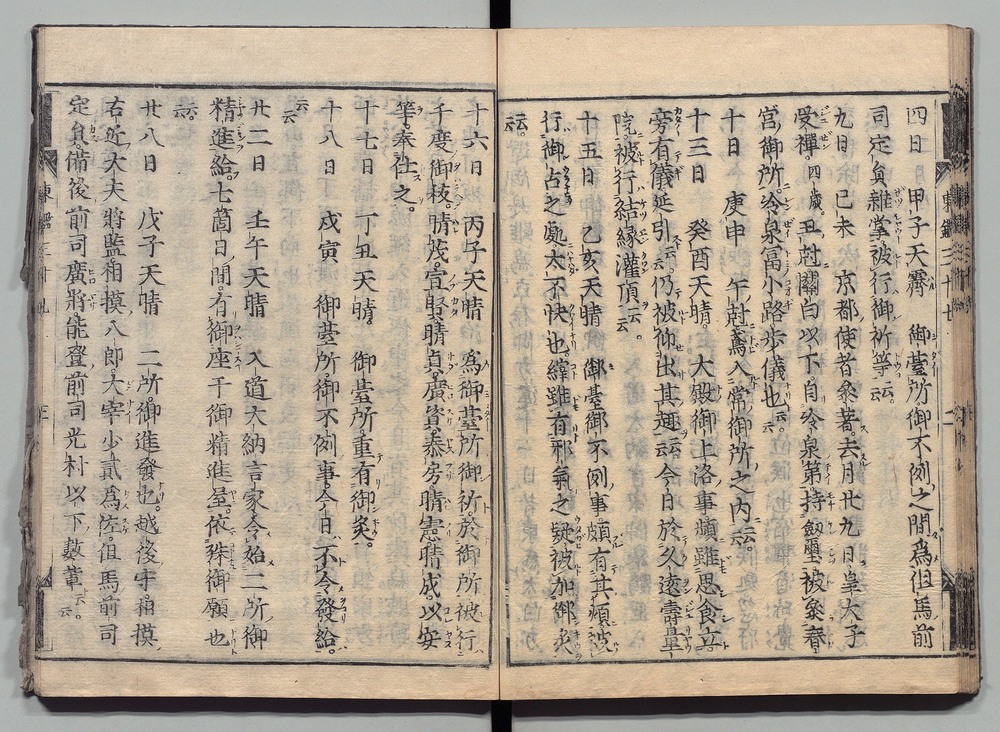 四日 甲子天霽 御臺所御不例之間爲但馬前
司定員雜掌被行御祈等云云
九日 己未 京都使者參著去月廿九日皇太子
受禪四歳丑尅關白以下自冷泉第持劔璽被參春
宮御所冷泉冨小路歩儀也云云
十日 庚申 午尅鳶入常御所之内云云
十三日 癸酉天晴 大殿御上洛事頻雖思食立
旁有儀延引云云仍被仰出其趣云云今日於久遠壽量
院被行結縁灌頂云云
十五日 乙亥天晴 御臺御不例事頗有其煩被
行御占之處太不快也縡雖有邪氣之疑被加御灸
云云
十六日 丙子天晴 爲御臺所御祈於御所被行
千度御祓晴茂宣賢晴貞廣資泰房晴憲晴成以安
等奉仕之
十七日 丁丑天晴 御臺所重有御灸
十八日 戊寅 御臺所御不例事今日不令發給
云云
廿二日 壬午天晴 入道大納言家令始二所御
精進給七箇日間有御座于御精進屋依殊御願也
云云
廿八日 戊子天晴 二所御進發也越後守相摸
右近大夫將監相摸八郎大宰少貳爲佐但馬前司
定員備後前司廣將能登前司光村以下數輩云云
東鑑三十七 二
東鑑三十九 三